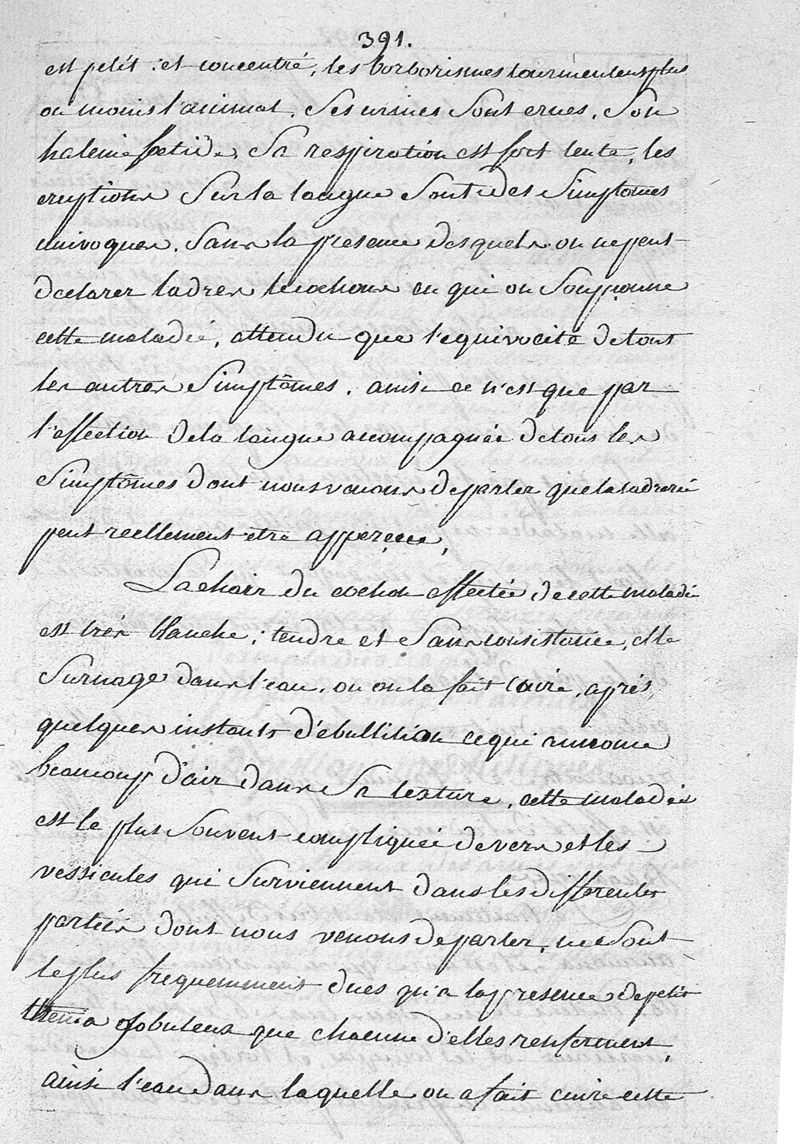 391.
est petit et concentré, les borborismes tourmentent plus
ou moins l'animal, Ses urines Sont crues, Son
haleine fœtide, Sa respiration est fort lente, les
eruptions Sur la langue Sont des Simptomes
univoques, Sans la presence desquels on ne peut
declarer ladres les cochons en qui on Soupçonne
cette maladie, attendu que l'equivocité de tout
les autres Simptômes. ainsi ce n'est que par
l'affection de la langue accompagnée de tous les
Simptômes dont nous venons de parler que la ladrerie
peut reellement etre apperçue,
La chair du cochon affectée de cette maladie
est très blanche, tendre et Sans consistance, elle
Surnage dans l'eau, ou on la fait cuire, après
quelques instants d'ebullition ce qui annonce
beaucoup d'air dans Sa texture, cette maladie
est le plus Souvent compliquée de vers et les
vessicules qui Surviennent dans les differentes
parties dont nous venons de parler, ne Sont
le plus frequemment dues qu'a la presence de petit
thenia globuleux que chacune d'elles renferment,
ainsi l'eau dans laquelle on a fait cuire cette